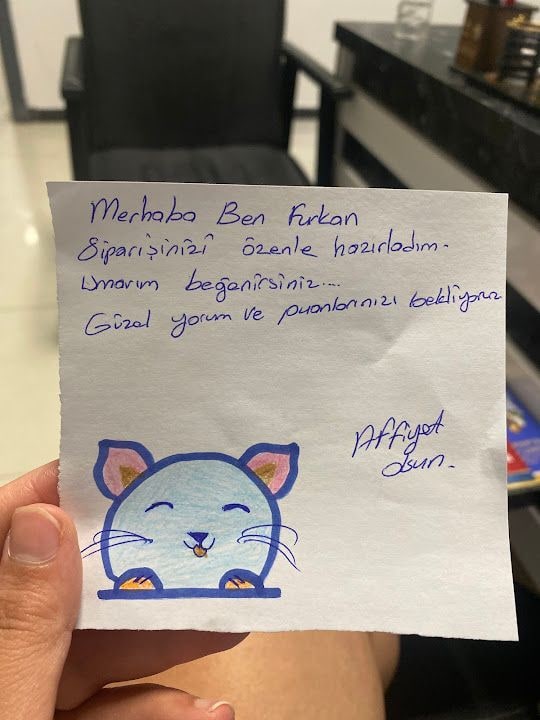 Merhaba Ben Furkan
Siparişinizi özenle hazırladım.
Umarım beğenirsiniz...
Güzel yorum ve puanlarınızı bekliyoruz
Affiyet
olsun.